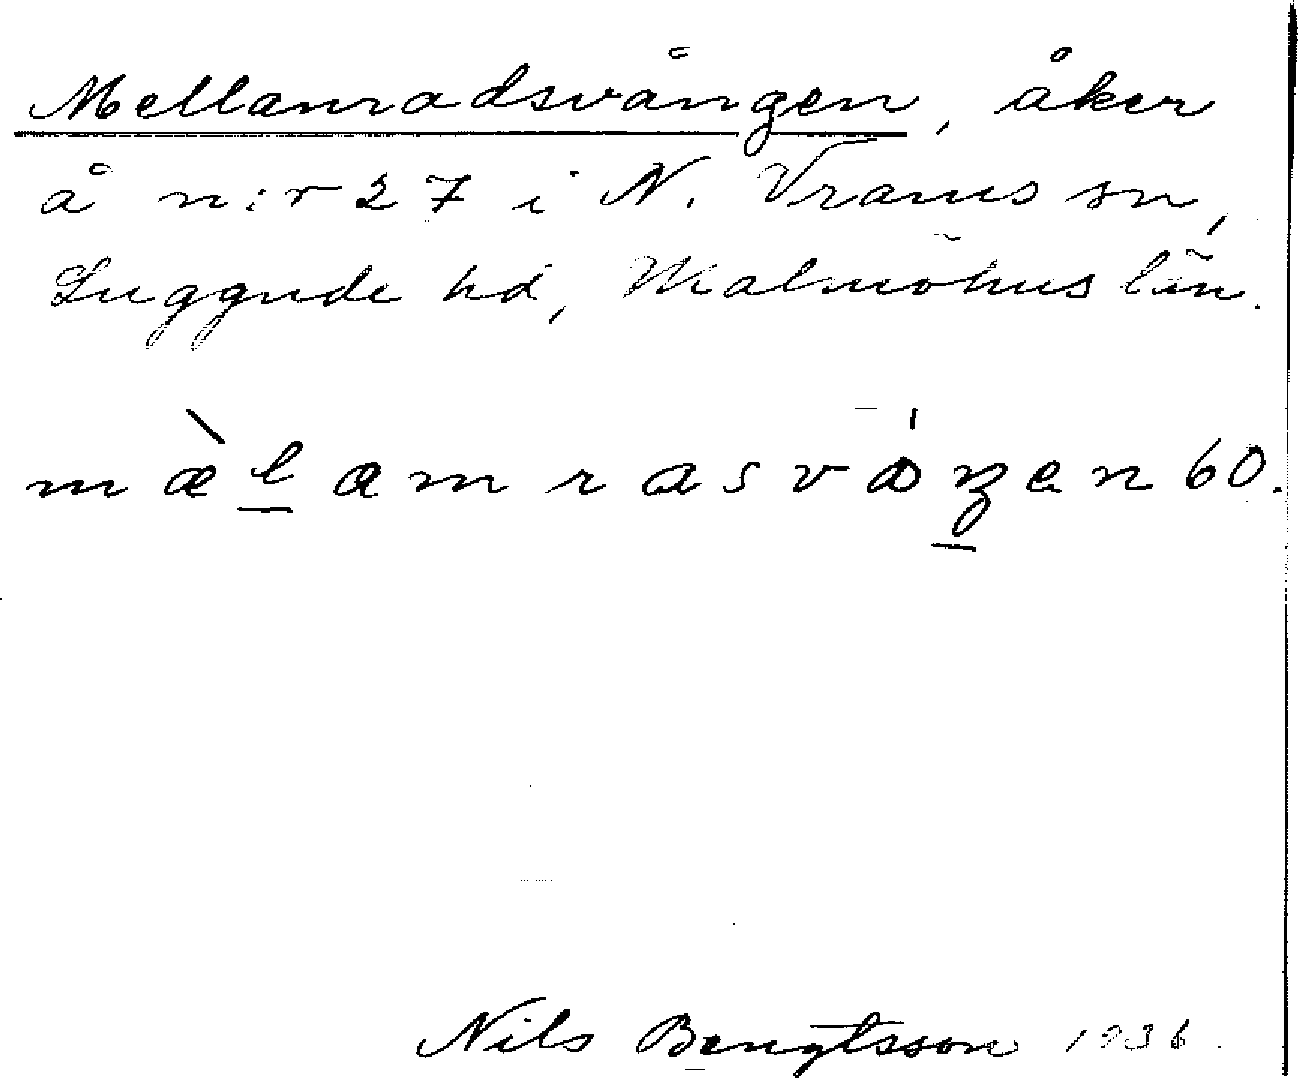 Mellanradsvången, åker
å n:r 27 i N. Vrams sn,
Luggude hd, Malmöhus län.
Nils Bengtsson 1936.